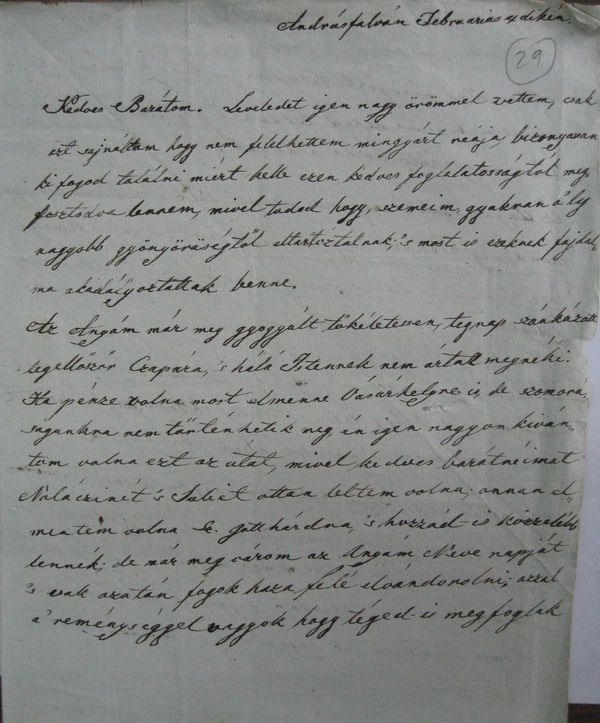 Andrásfalván Februarius 4dikén.
29
Kedves Barátom. Leveledet igen nagy örömmel vettem, csak
ezt sajnáltam hogy nem felelhettem mingyárt reája, bizonyavan
ki fogod találni miért kelle ezen kedves foglalatosságtol meg
fosztodva lennem, mivel tudod hogy, szemeim, gyakran ily
nagyobb gyönyörüségtől eltartoztatnak, 's most is ezeknek fájdal,
ma akadájoztattak benne.
Az Angám már meg gyogyúlt tökéletessen, tegnap szánkázott
legellőször Csapára, 's hálá Istennek nem ártatt megnéki.
Ha pénze volna most elmenne Vásárhelyre is, de szomorú,
ságunkra nem történhetik meg, én igen nagyon kiván,
tam volna ezt az útat, mivel kedves barátnéimat
Naláczinét 's Juliét ottan leltem volna; onnan el,
mentem volna Sz. Gotthárdra, 's hozzád is közzelebb
lennék; de már meg várom az Angám Neve napját
's csak azután fogok haza felé elvándorolni; azzal
a' reménységgel vagyok hogy téged is megfoglak